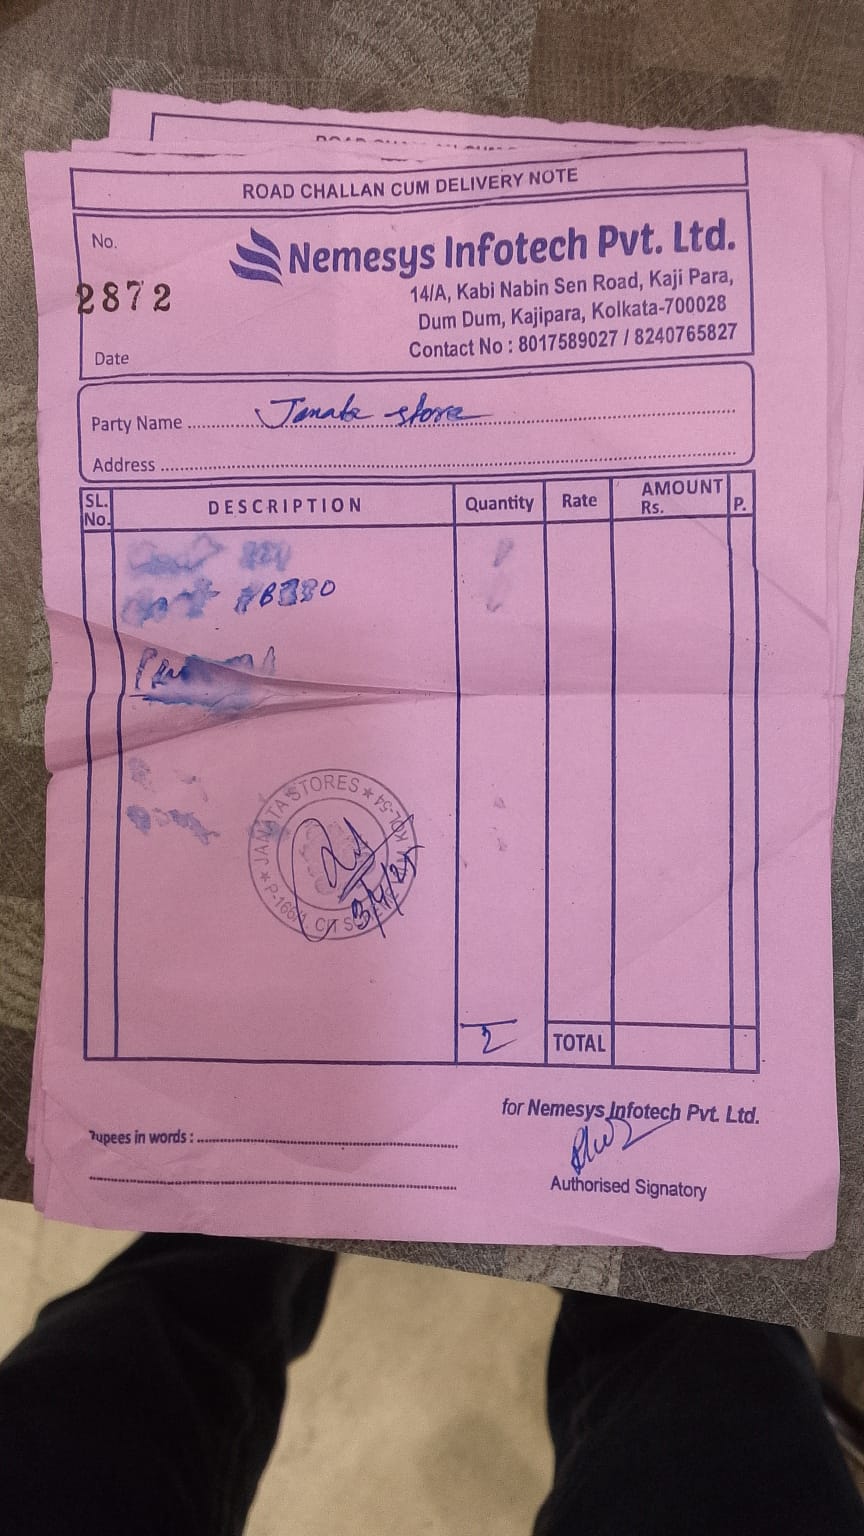 ROAD CHALLAN CUM DELIVERY NOTE
No.
2872
Nemesys Infotech Pvt. Ltd.
14/A, Kabi Nabin Sen Road, Kaji Para,
Dum Dum, Kajipara, Kolkata-700028
Contact No : 8017589027 / 8240765827
Date
Party Name Janata store
Address
SL. No. DESCRIPTION Quantity Rate AMOUNT Rs. P.
JANATA STORES ★ KOL-54 ★ P-166/1 CIT
2
TOTAL
for Nemesys Infotech Pvt. Ltd.
Rupees in words :
Authorised Signatory